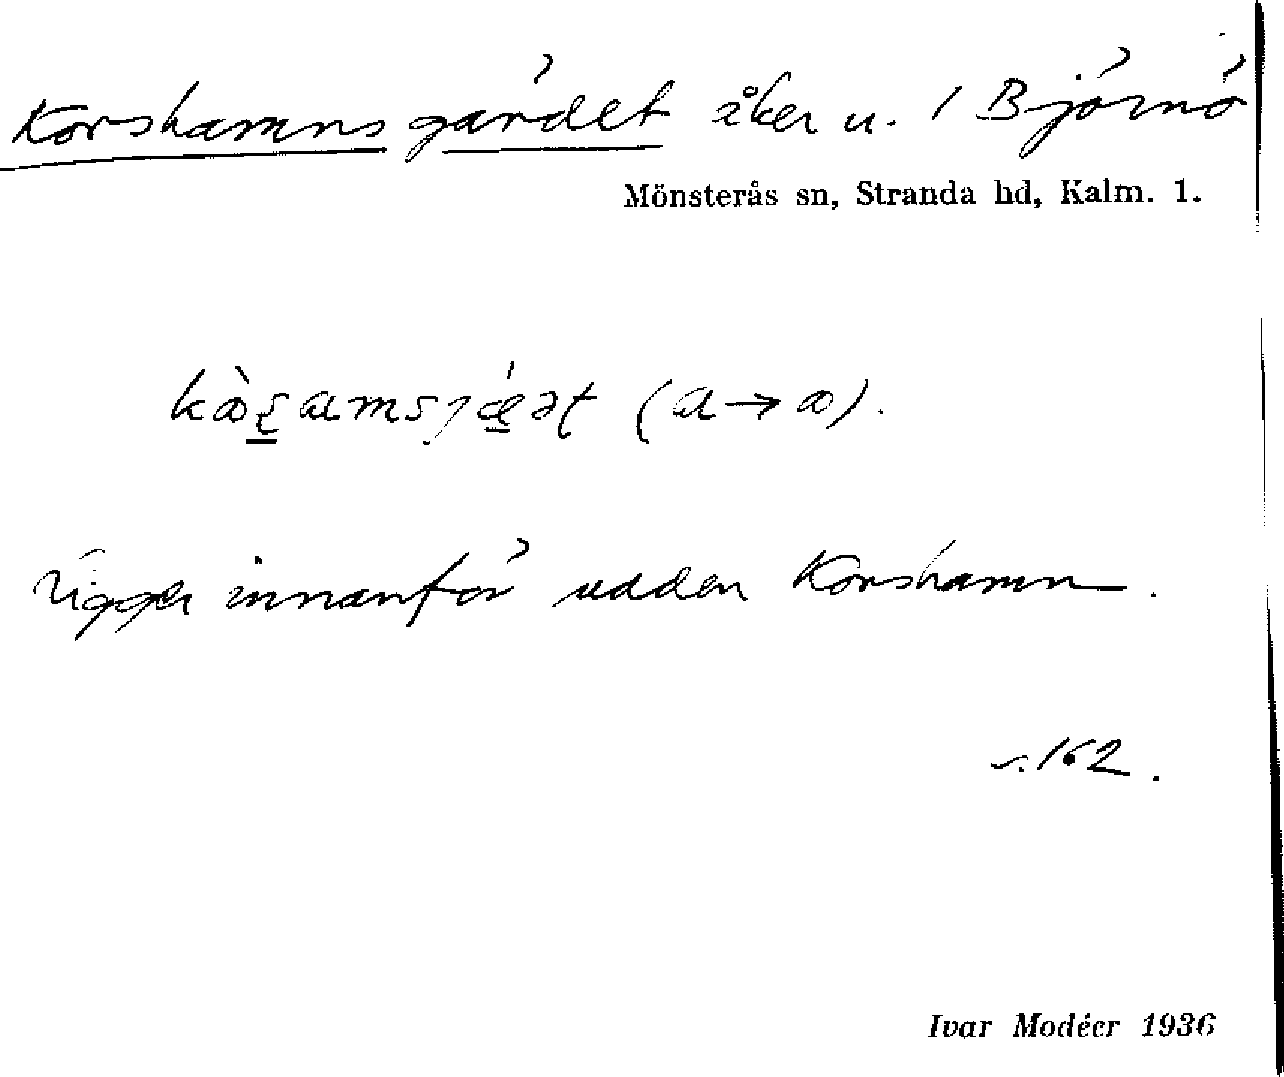 Korshamnsgärdet åker u. 1 Björnö
Mönsterås sn, Stranda hd, Kalm. 1.
Ligger innanför udden Korshamn.
s. 162.
Ivar Modéer 1936